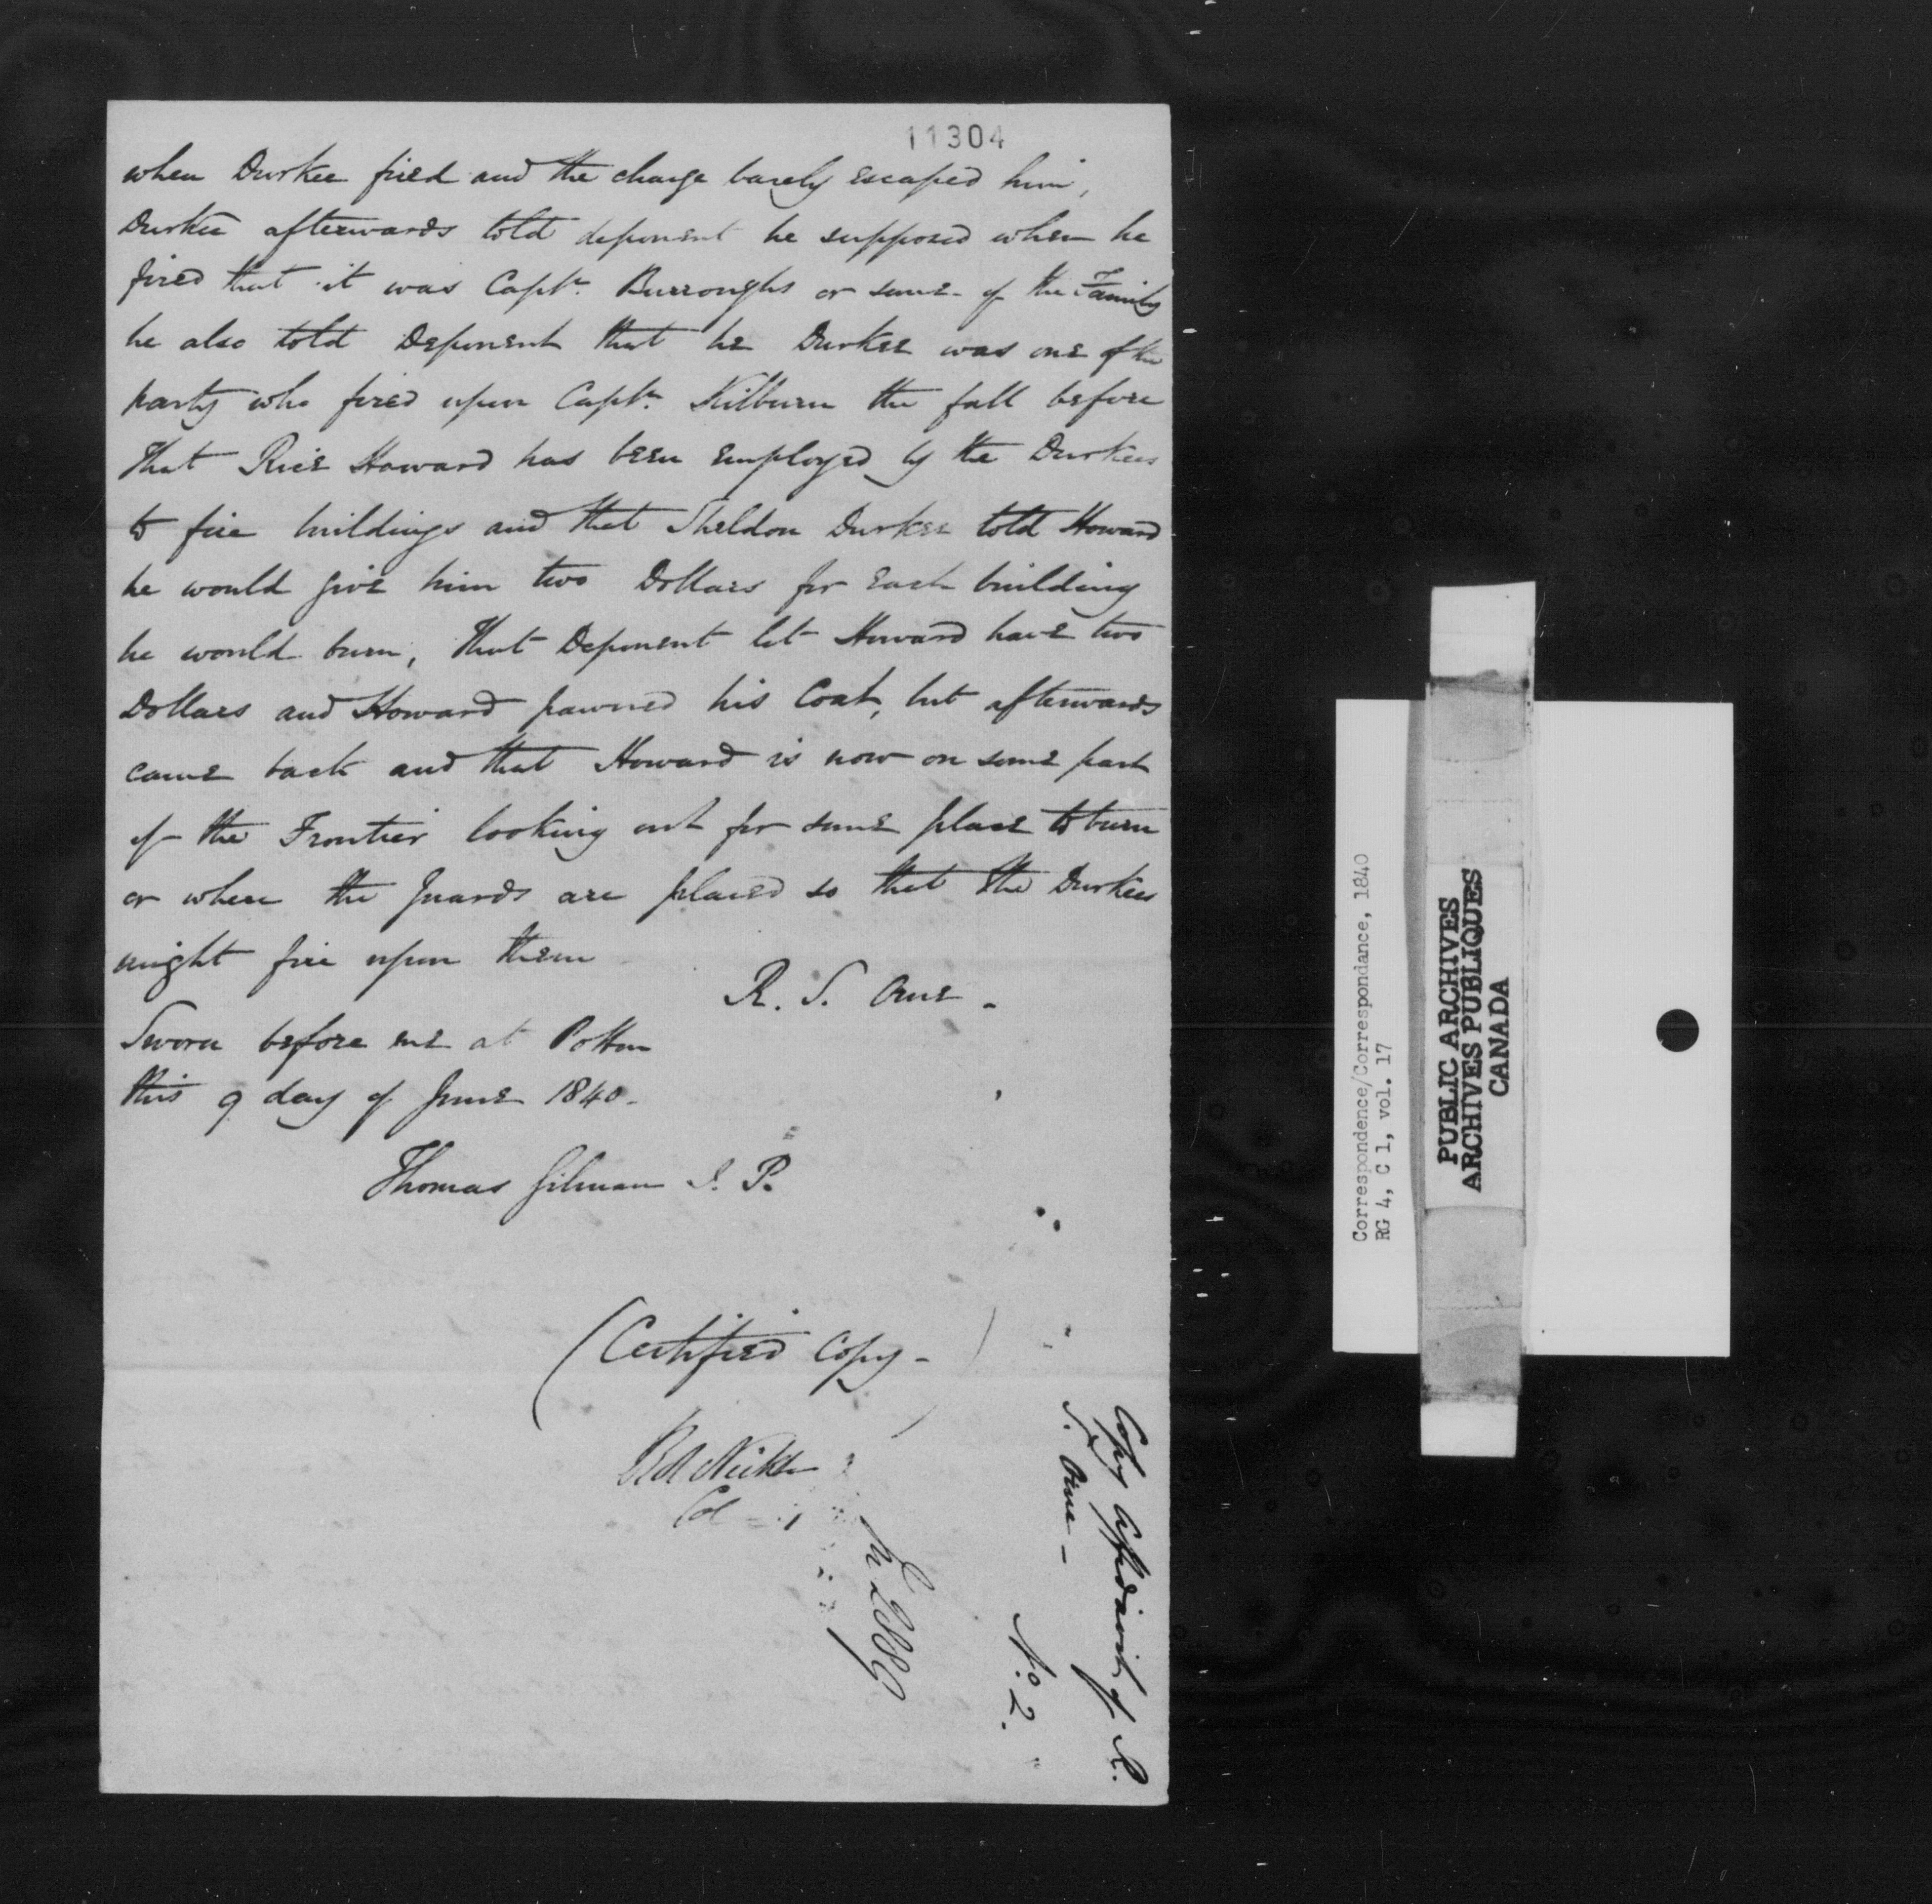 11304
when Durkee fired and the charge barely escaped him,
Durkee afterwards told deponent he supposed when he
fired that it was Capt. Burroughs or some of the Family
he also told Deponent that he Durkee was one of the
party who fired upon Capt. Kilburn the fall before
That Rice Howard has been employed by the Durkees
to fire buildings and that Sheldon Durkee told Howard
he would give him two Dollars for each building
he would burn, That Deponent let Howard have two
Dollars and Howard pawned his Coat, but afterwards
came back and that Howard is now on some part
of the Frontier looking out for some place to burn
or where the guards are placed so that the Durkees
might fire upon them
R. S. Orne -
Sworn before me at Potton
this 9 day of June 1840-
Thomas Gilman J. P.
(Certified Copy - )
Col
Copy Affidavit of R.
S. Orne -
No. 2.
Correspondence/Correspondance, 1840
RG 4, C 1, vol. 17
PUBLIC ARCHIVES
ARCHIVES PUBLIQUES
CANADA